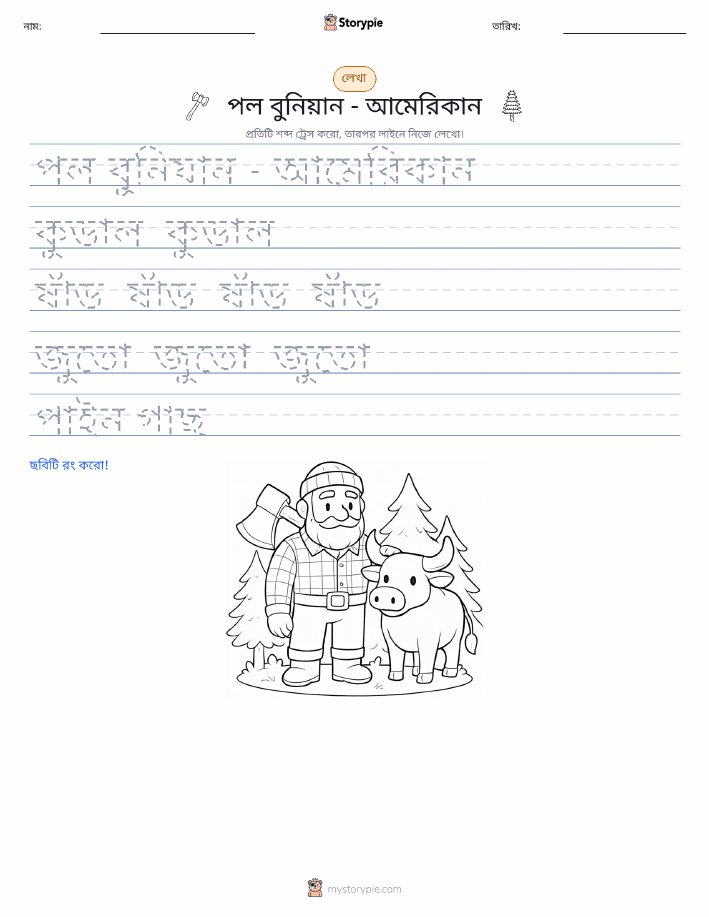 নাম:
Storypie
তারিখ:
লেখা
পল বুনিয়ান - আমেরিকান
প্রতিটি শব্দ ট্রেস করো, তারপর লাইনে নিজে লেখো।
পল বুনিয়ান - আমেরিকান
কুড়াল কুড়াল
ষাঁড় ষাঁড় ষাঁড় ষাঁড়
জুতো জুতো জুতো
পাইন গাছ
ছবিটি রং করো!
mystorypie.com